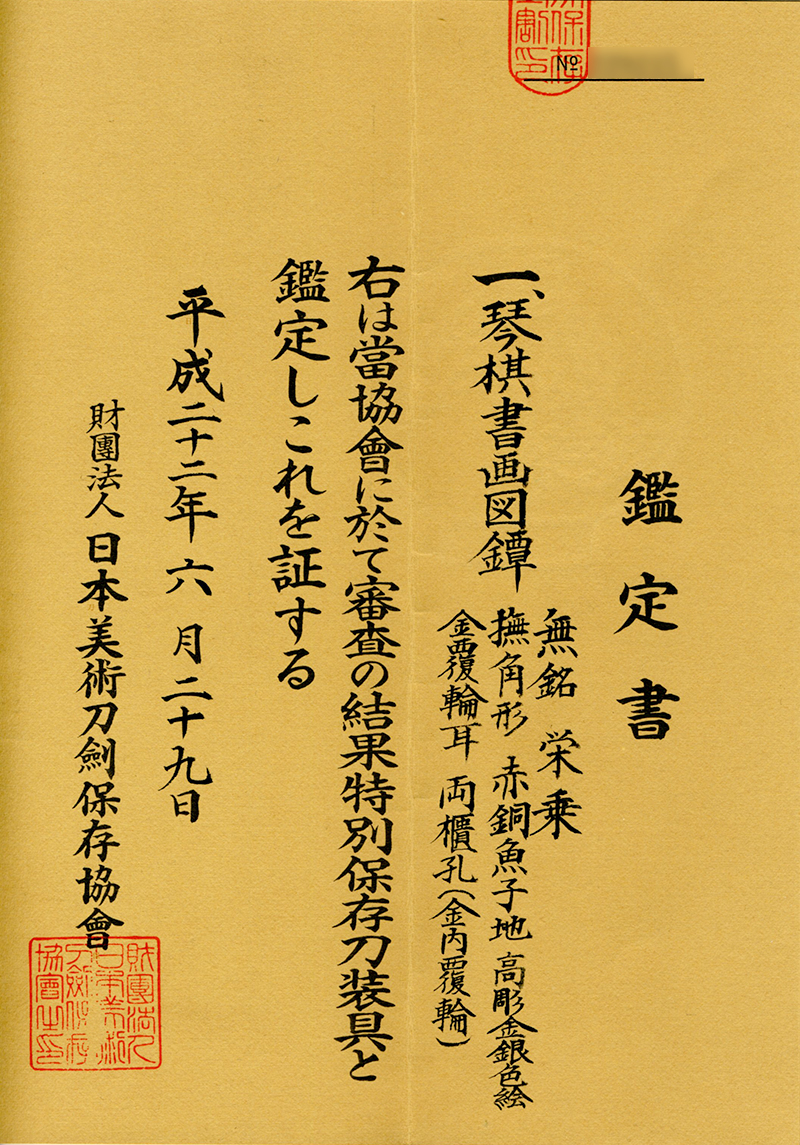 鑑定書
一、琴棋書画図鐔
無銘 栄乗
撫角形 赤銅魚子地 高彫金銀色絵
金覆輪耳 両櫃孔(金内覆輪)
右は當協會に於て審査の結果特別保存刀装具と
鑑定しこれを証する
平成二十二年六月二十九日
財團法人日本美術刀劍保存協會
№
財團法人
日本美術
刀劍保存
協會之印